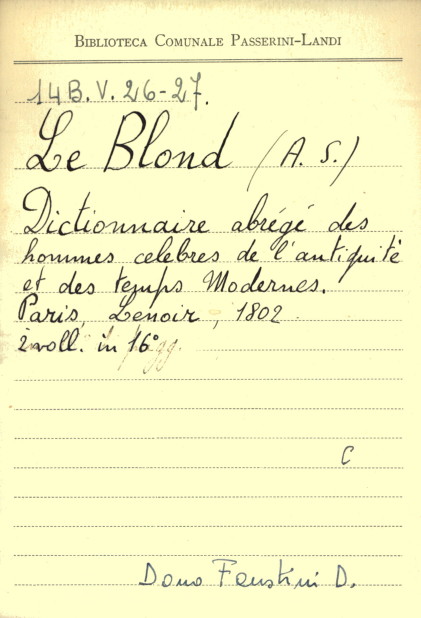 BIBLIOTECA COMUNALE PASSERINI-LANDI
14B.V. 26-27.
Le Blond (A. S.)
Dictionnaire abrégé des
hommes celebres de l'antiquité
et des temps Modernes.
Paris, Lenoir, 1802
2 voll. in 16°
C
Dono Faustini D.